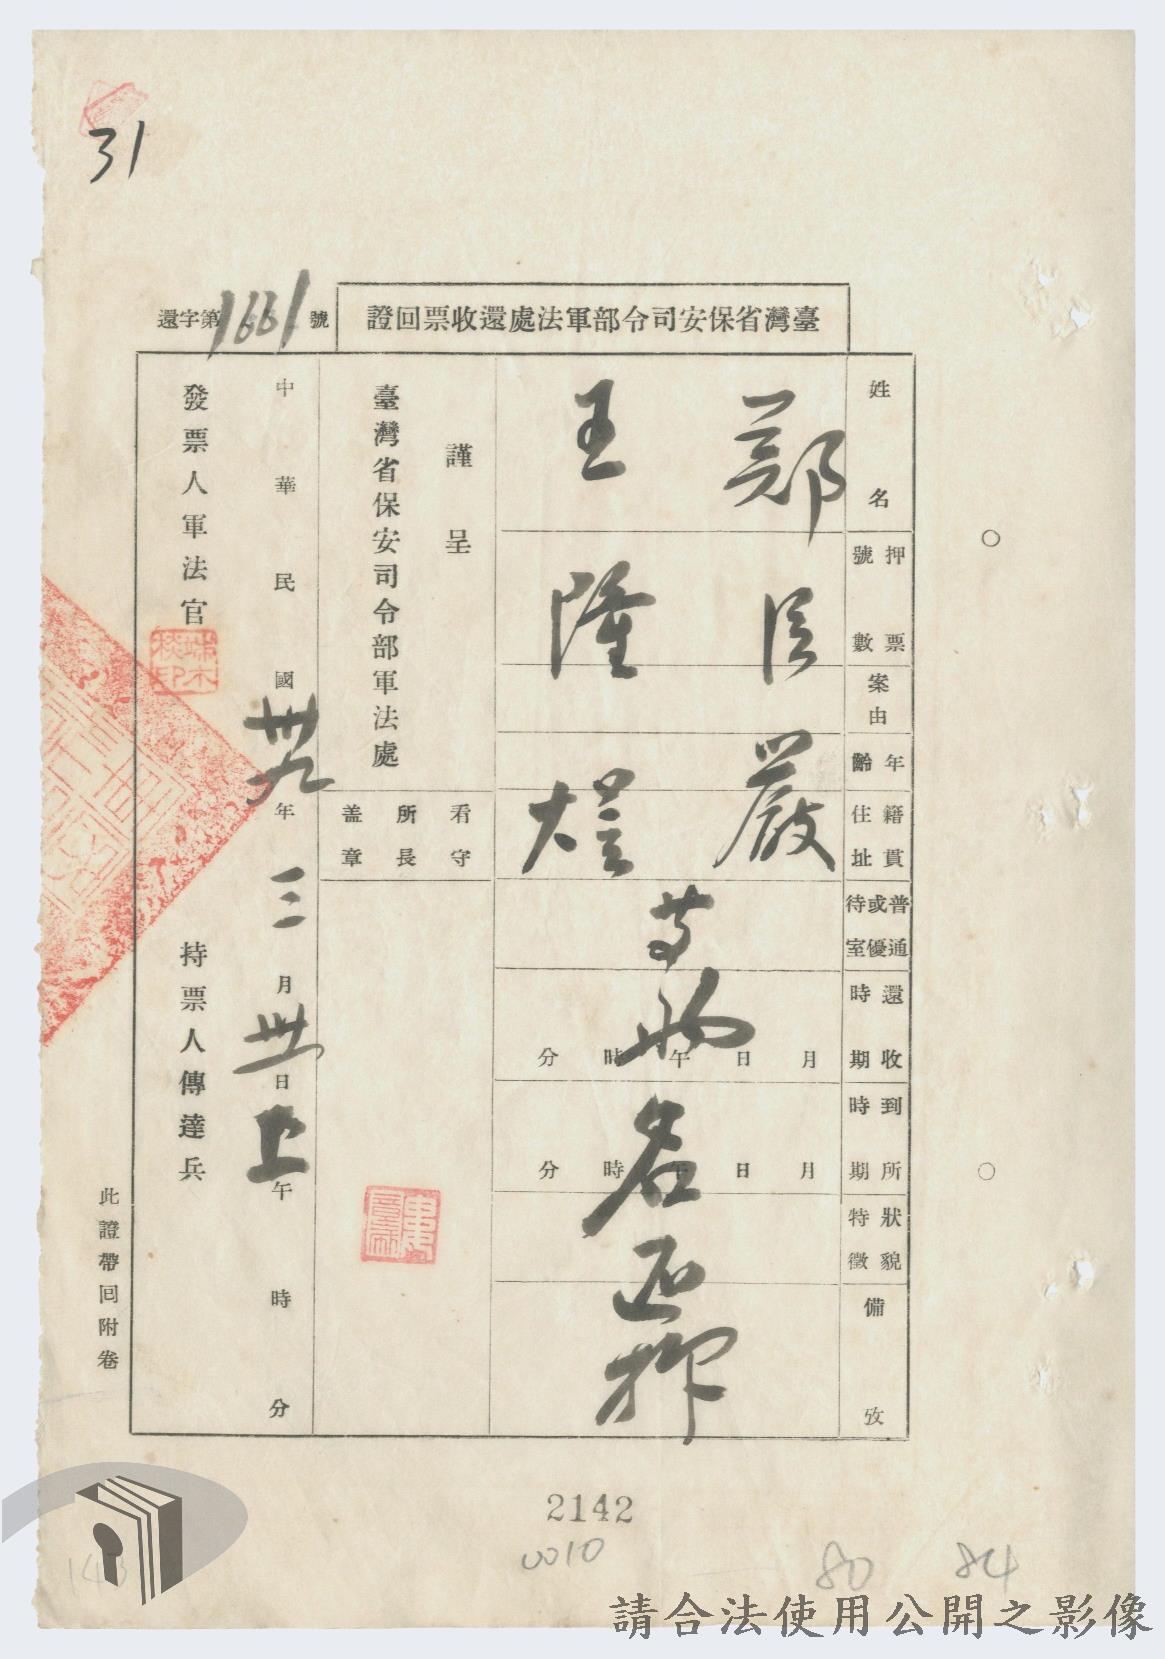 31
臺灣省保安司令部軍法處還收票回證
還字第1661號
姓名
押票號數
案由
年齡
籍貫住址
普通或優待室
還收時期
到所時期
狀貌特徵
備攷
鄭臣嚴
王隆煃
等
名還押
月日午時分
月日午時分
謹呈
臺灣省保安司令部軍法處
看守所長盖章
中華民國卅九年三月卅日上午時分
發票人軍法官
端木棪印
持票人傳達兵
此證帶回附卷
2142
0010
80
84
143
請合法使用公開之影像